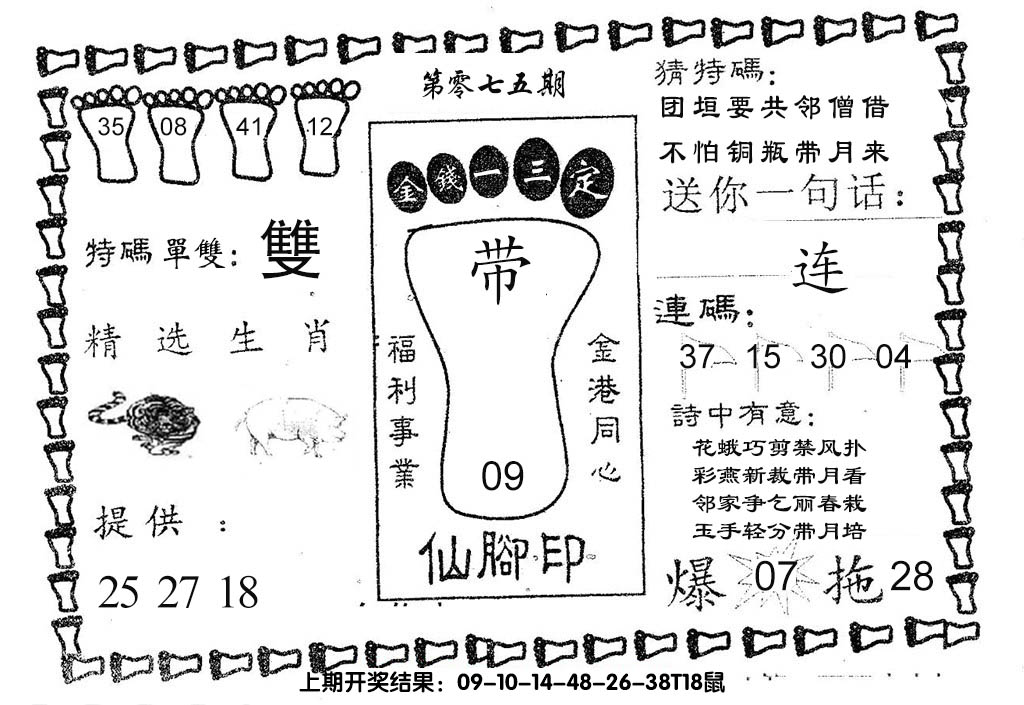 第零七五期
35 08 41 12
特碼單雙：雙
精选生肖
提供：
25 27 18
金錢一三定
带
福利事業
金港同心
09
仙腳印
猜特碼：
团垣要共邻僧借
不怕铜瓶带月来
送你一句话：
连
連碼：
37 15 30 04
詩中有意：
花蛾巧剪禁风扑
彩燕新裁带月看
邻家争乞丽春栽
玉手轻分带月培
爆 07 拖 28
上期开奖结果：09-10-14-48-26-38T18鼠